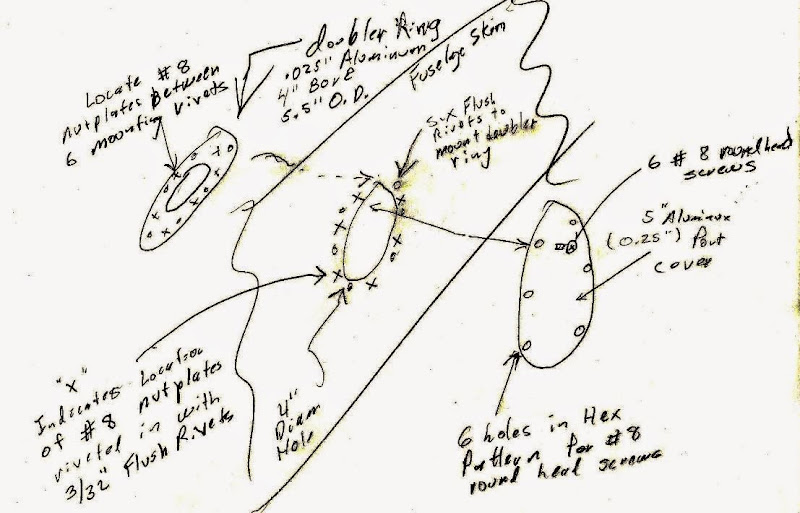 Locate #8
nutplates between
6 mounting rivets
doubler Ring
.025" Aluminum
4" Bore
5.5" O.D.
Fuselage Skin
six Flush
Rivets to
mount doubler
ring
6 #8 roundhead
screws
5" Aluminum
(0.25") Port
cover
"X"
Indicates Location
of #8 nutplates
riveted in with
3/32" Flush Rivets
4"
Diam
Hole
6 holes in Hex
Pattern for #8
round head screws